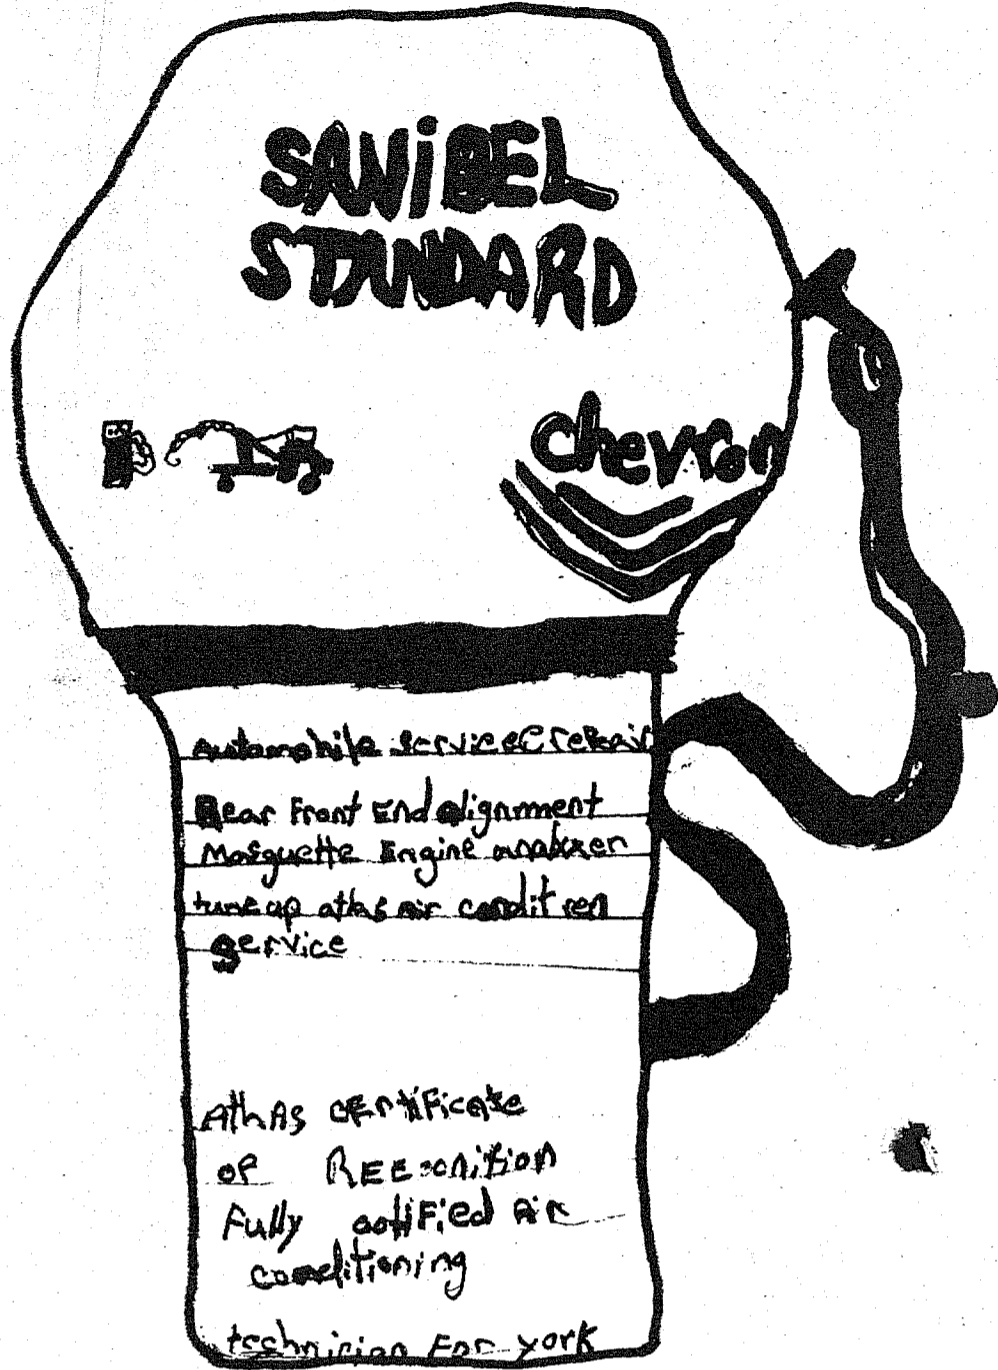 SANiBEL
STANDARD
Chevron
Automobile service & repair
Rear Front End alignment
Marquette Engine analyzer
tune up atlas air condit ren
service
AthAs CERtiFicate
oF REEconition
Fully cotiFied Air
conditioning
technician For york